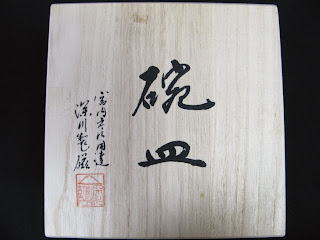 碗皿
宮内庁御用達
深川製磁